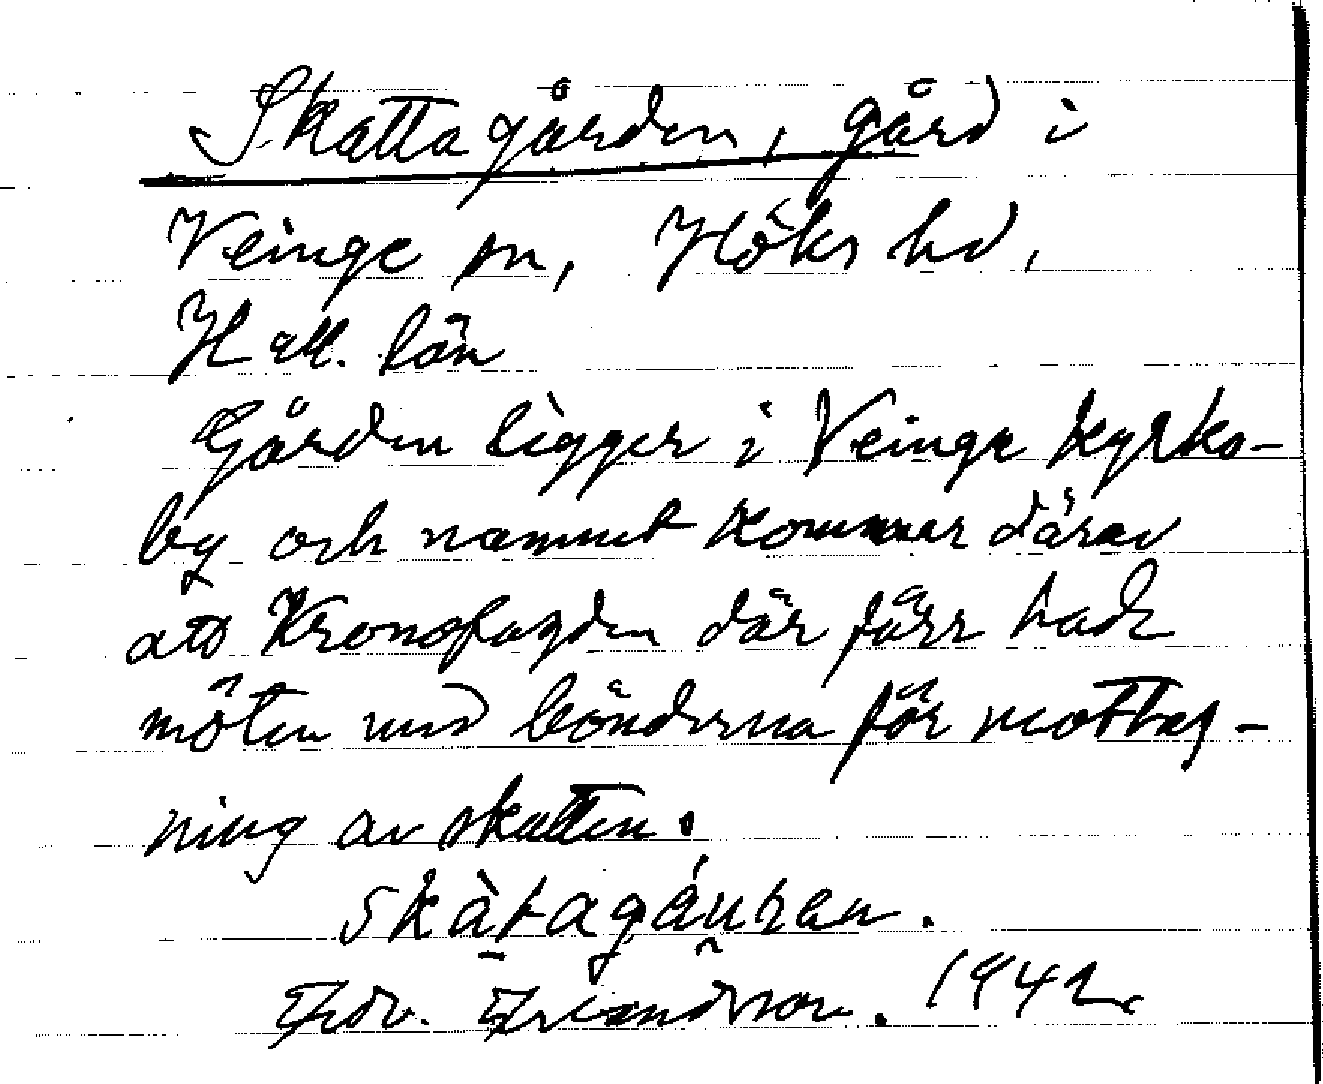 Skattagården, gård i
Veinge sn, Höks hd,
Hall. län
Gården ligger i Veinge kyrko-
by och namnet kommer därav
att Kronofogden där förr hade
möten med bönderna för mottag-
ning av skatten.
skàtagáuran.
1942.